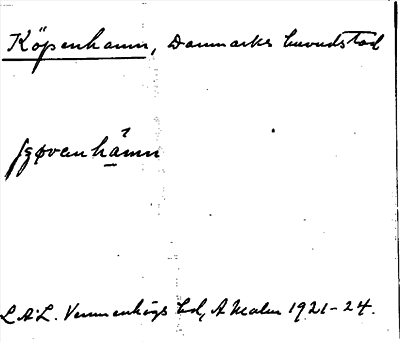 Köpenhamn, Danmarks huvudstad
L.A:L. Vemmenhögs hd, A Malm 1921-24.